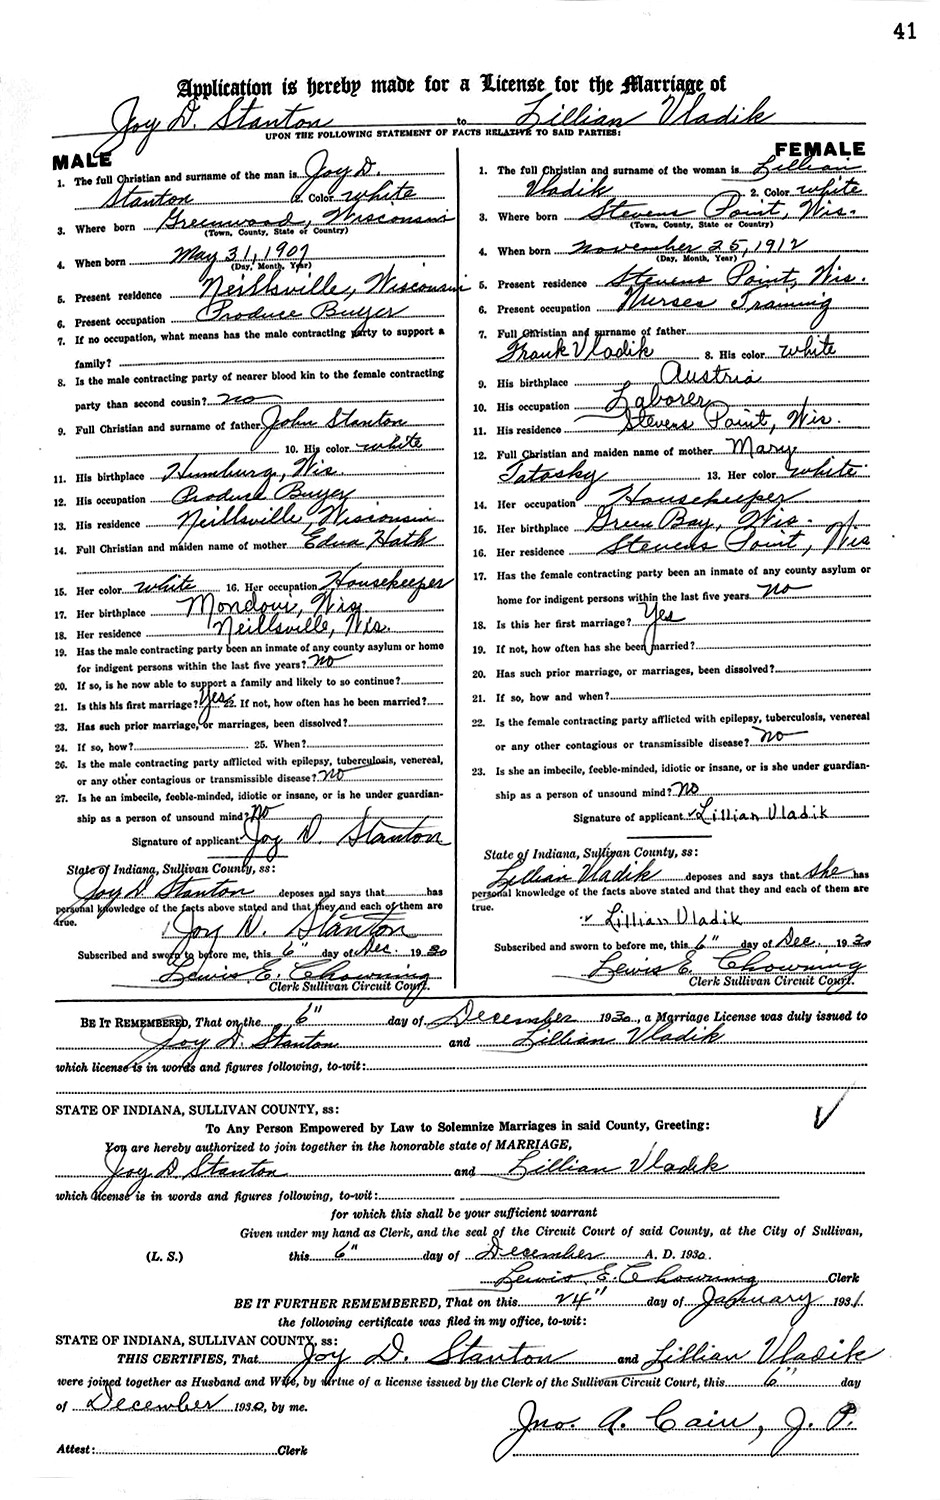 41
Application is hereby made for a License for the Marriage of
Joy D. Stanton to Lillian Vladik
UPON THE FOLLOWING STATEMENT OF FACTS RELATIVE TO SAID PARTIES:
MALE
1. The full Christian and surname of the man is Joy D.
Stanton 2. Color white
3. Where born Greenwood, Wisconsin
(Town, County, State or Country)
4. When born May 31, 1907
(Day, Month, Year)
5. Present residence Neillsville, Wisconsin
6. Present occupation Produce Buyer
7. If no occupation, what means has the male contracting party to support a
family?
8. Is the male contracting party of nearer blood kin to the female contracting
party than second cousin? no
9. Full Christian and surname of father John Stanton
10. His color white
11. His birthplace Humburg, Wis.
12. His occupation Produce Buyer
13. His residence Neillsville, Wisconsin
14. Full Christian and maiden name of mother Edna Hath
15. Her color white 16. Her occupation Housekeeper
17. Her birthplace Mondovi, Wis.
18. Her residence Neillsville, Wis.
19. Has the male contracting party been an inmate of any county asylum or home
for indigent persons within the last five years? no
20. If so, is he now able to support a family and likely to so continue?
21. Is this his first marriage? Yes 22. If not, how often has he been married?
23. Has such prior marriage, or marriages, been dissolved?
24. If so, how? 25. When?
26. Is the male contracting party afflicted with epilepsy, tuberculosis, venereal,
or any other contagious or transmissible disease? no
27. Is he an imbecile, feeble-minded, idiotic or insane, or is he under guardian-
ship as a person of unsound mind? No
Signature of applicant Joy D. Stanton
State of Indiana, Sullivan County, ss:
Joy D Stanton deposes and says that has
personal knowledge of the facts above stated and that they and each of them are
true.
Joy D. Stanton
Subscribed and sworn to before me, this 6" day of Dec. 1930
Lewis E. Chowning
Clerk Sullivan Circuit Court.
FEMALE
1. The full Christian and surname of the woman is Lillian
Vladik 2. Color white
3. Where born Stevens Point, Wis.
(Town, County, State or Country)
4. When born November 25, 1912
(Day, Month, Year)
5. Present residence Stevens Point, Wis.
6. Present occupation Nurses Training
7. Full Christian and surname of father
Frank Vladik 8. His color white
9. His birthplace Austria
10. His occupation Laborer
11. His residence Stevens Point, Wis.
12. Full Christian and maiden name of mother Mary
Tatosky 13. Her color white
14. Her occupation Housekeeper
15. Her birthplace Green Bay, Wis.
16. Her residence Stevens Point, Wis
17. Has the female contracting party been an inmate of any county asylum or
home for indigent persons within the last five years. no
18. Is this her first marriage? Yes
19. If not, how often has she been married?
20. Has such prior marriage, or marriages, been dissolved?
21. If so, how and when?
22. Is the female contracting party afflicted with epilepsy, tuberculosis, venereal
or any other contagious or transmissible disease? no
23. Is she an imbecile, feeble-minded, idiotic or insane, or is she under guardian-
ship as a person of unsound mind? no
Signature of applicant Lillian Vladik
State of Indiana, Sullivan County, ss:
Lillian Vladik deposes and says that she has
personal knowledge of the facts above stated and that they and each of them are
true.
Lillian Vladik
Subscribed and sworn to before me, this 6" day of Dec. 1930
Lewis E. Chowning
Clerk Sullivan Circuit Court.
BE IT REMEMBERED, That on the 6" day of December 1930, a Marriage License was duly issued to
Joy D. Stanton and Lillian Vladik
which license is in words and figures following, to-wit:
STATE OF INDIANA, SULLIVAN COUNTY, ss:
To Any Person Empowered by Law to Solemnize Marriages in said County, Greeting:
You are hereby authorized to join together in the honorable state of MARRIAGE,
Joy D Stanton and Lillian Vladik
which license is in words and figures following, to-wit:
for which this shall be your sufficient warrant
Given under my hand as Clerk, and the seal of the Circuit Court of said County, at the City of Sullivan,
(L. S.) this 6" day of December A. D. 1930.
Lewis E. Chowning Clerk
BE IT FURTHER REMEMBERED, That on this 24" day of January 1931.
the following certificate was filed in my office, to-wit:
STATE OF INDIANA, SULLIVAN COUNTY, ss:
THIS CERTIFIES, That Joy D. Stanton and Lillian Vladik
were joined together as Husband and Wife, by virtue of a license issued by the Clerk of the Sullivan Circuit Court, this 6" day
of December 1930, by me.
Jno. A. Cain, J. P.
Attest: Clerk